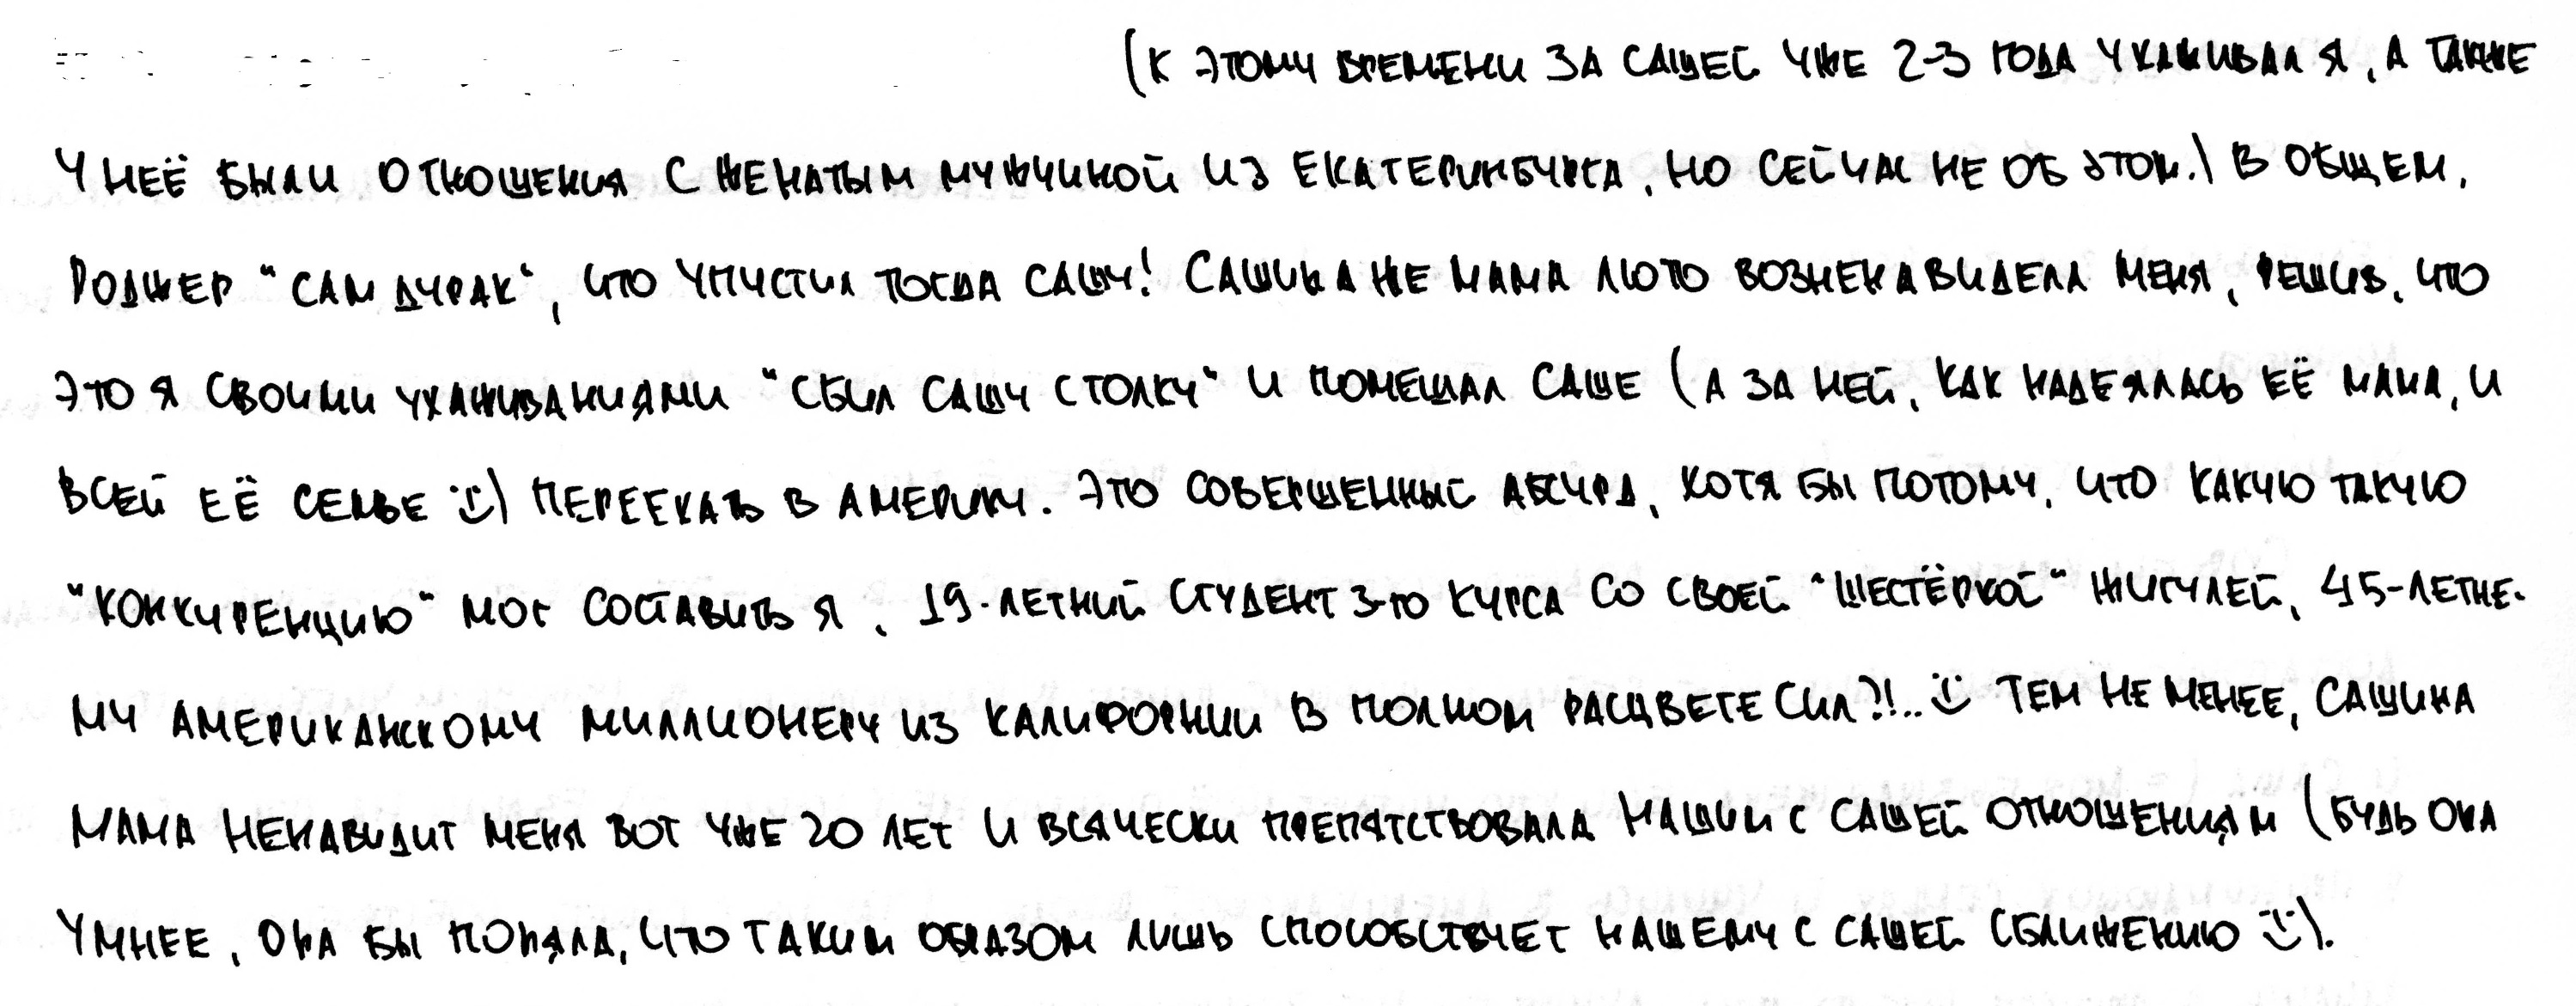 (К ЭТОМУ ВРЕМЕНИ ЗА САШЕЙ УЖЕ 2-3 ГОДА УХАЖИВАЛ Я, А ТАКЖЕ
У НЕЁ БЫЛИ ОТНОШЕНИЯ С ЖЕНАТЫМ МУЖЧИНОЙ ИЗ ЕКАТЕРИНБУРГА, НО СЕЙЧАС НЕ ОБ ЭТОМ.) В ОБЩЕМ,
РОДЖЕР "САМ ДУРАК", ЧТО УПУСТИЛ ТОГДА САШУ! САШИНА ЖЕ МАМА ЛЮТО ВОЗНЕНАВИДЕЛА МЕНЯ, РЕШИВ, ЧТО
ЭТО Я СВОИМИ УХАЖИВАНИЯМИ "СБИЛ САШУ С ТОЛКУ" И ПОМЕШАЛ САШЕ (А ЗА НЕЙ, КАК НАДЕЯЛАСЬ ЕЁ МАМА, И
ВСЕЙ ЕЁ СЕМЬЕ :)) ПЕРЕЕХАТЬ В АМЕРИКУ. ЭТО СОВЕРШЕННЫЙ АБСУРД, ХОТЯ БЫ ПОТОМУ, ЧТО КАКУЮ ТАКУЮ
"КОНКУРЕНЦИЮ" МОГ СОСТАВИТЬ Я, 19-ЛЕТНИЙ СТУДЕНТ 3-ГО КУРСА СО СВОЕЙ "ШЕСТЁРКОЙ" ЖИГУЛЕЙ, 45-ЛЕТНЕ-
МУ АМЕРИКАНСКОМУ МИЛЛИОНЕРУ ИЗ КАЛИФОРНИИ В ПОЛНОМ РАСЦВЕТЕ СИЛ?!.. :) ТЕМ НЕ МЕНЕЕ, САШИНА
МАМА НЕНАВИДИТ МЕНЯ ВОТ УЖЕ 20 ЛЕТ И ВСЯЧЕСКИ ПРЕПЯТСТВОВАЛА НАШИМ С САШЕЙ ОТНОШЕНИЯМ (БУДЬ ОНА
УМНЕЕ, ОНА БЫ ПОНЯЛА, ЧТО ТАКИМ ОБРАЗОМ ЛИШЬ СПОСОБСТВУЕТ НАШЕМУ С САШЕЙ СБЛИЖЕНИЮ :)).